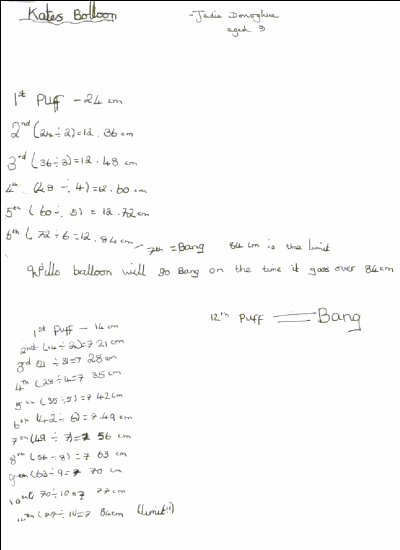 Kates Balloon
- Jadie Donoghue
aged 9
1st Puff - 24 cm
2nd (24÷2)=12. 36 cm
3rd (36÷3)=12. 48 cm
4th (48 ÷ 4)=12. 60 cm
5th (60÷ 5) = 12. 72 cm
6th (72÷6=12. 84 cm - 7th = Bang 84 cm is the limit
balloon will go Bang on the time it goes over 84 cm
12th Puff = Bang
1st Puff - 14 cm
2nd (14÷2)=7 21 cm
3rd (21 ÷ 3)=7 28 cm
4th (28÷4=7 35 cm
5th (35÷5)=7 42 cm
6th (42÷ 6)=7. 49 cm
7th (49 ÷ 7)=7 56 cm
8th (56÷8) = 7 63 cm
9th (63÷9=7 70 cm
70÷10=7 77 cm
(77÷11=7 84cm (limit)